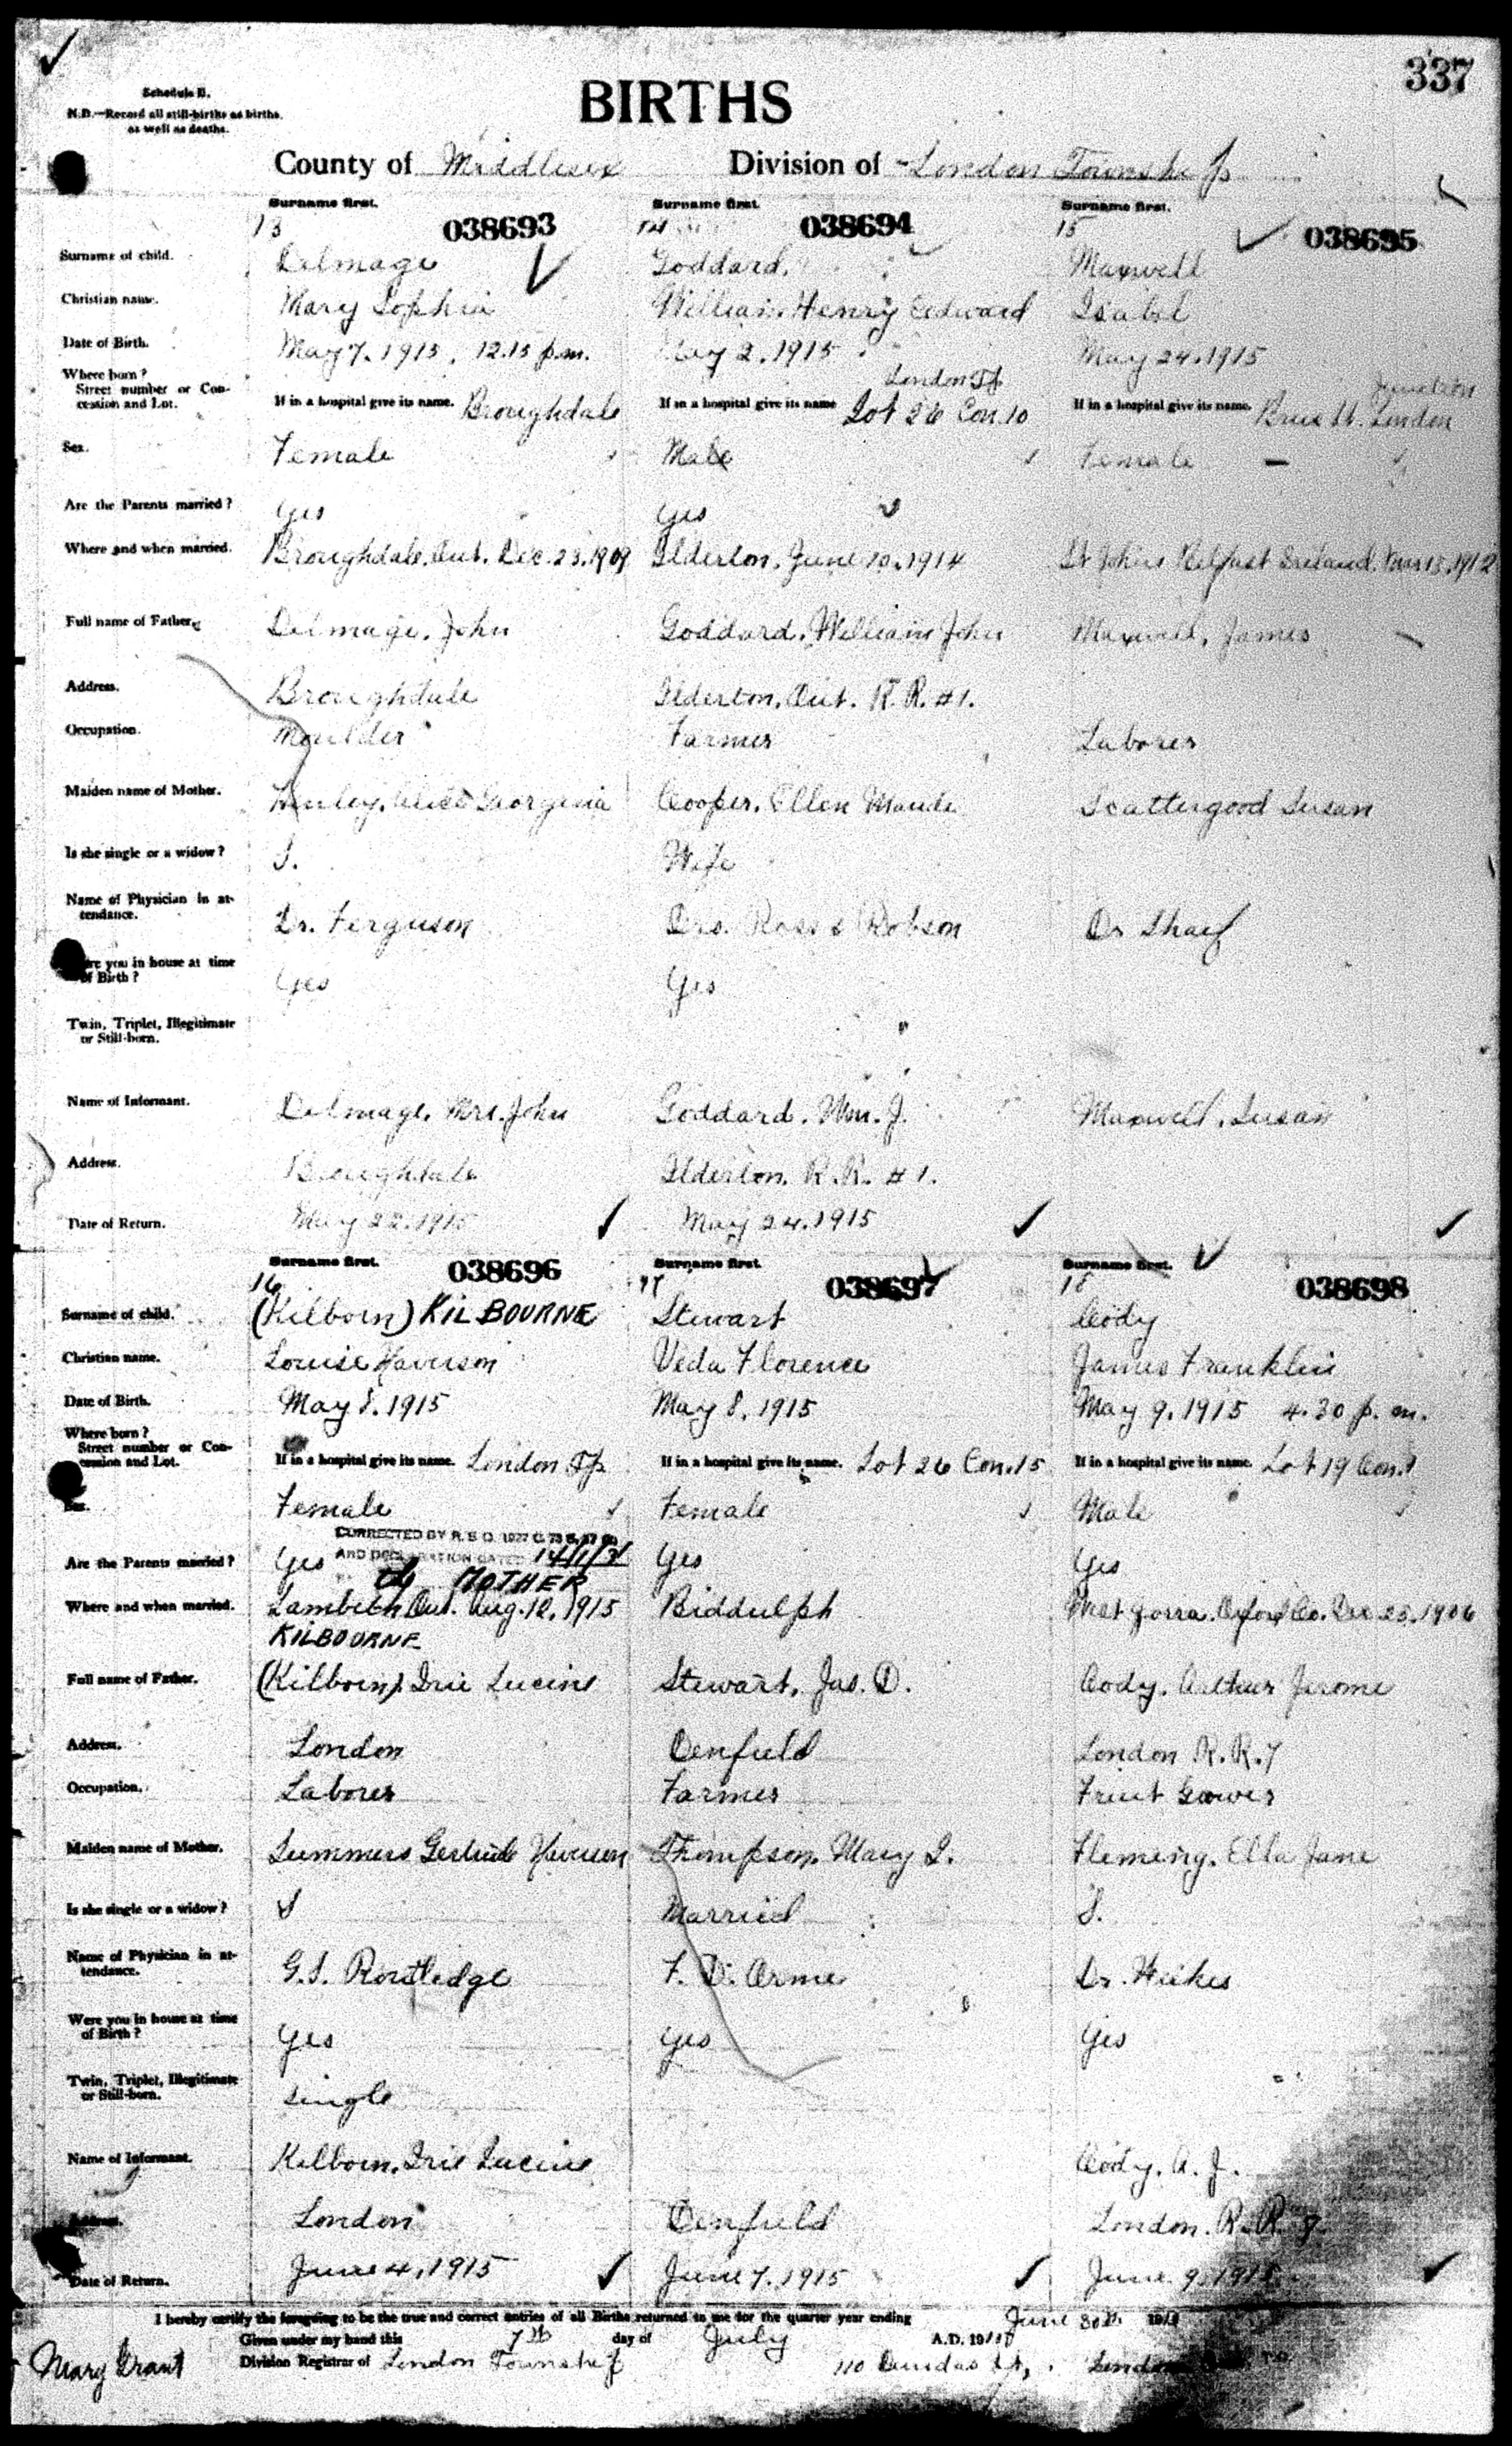 337
Schedule B.
N.B.—Record all still-births as births,
as well as deaths.
BIRTHS
County of Middlesex Division of London Township
Surname first. Surname first. Surname first.
13 038693 14 038694 15 038695
Surname of child. Delmage Goddard. Maxwell
Christian name. Mary Sophia William Henry Edward Isabel
Date of Birth. May 7. 1915, 12.15 p.m. May 2. 1915 May 24. 1915
Where born?
Street number or Con-
cession and Lot.
London Tp Junction
If in a hospital give its name. Broughdale If in a hospital give its name Lot 26 Con. 10 If in a hospital give its name. St. London
Sex. Female Male Female
Are the Parents married? Yes Yes
Where and when married. Broughdale. Ont. Dec. 23. 1909 Ilderton, June 10. 1914 St Johns Belfast Ireland. 1912
Full name of Father. Delmage, John Goddard, William John Maxwell, James
Address. Broughdale Ilderton, Ont. R. R. #1.
Occupation. Moulder Farmer Laborer
Maiden name of Mother. Georgenia Cooper, Ellen Maude Scattergood Susan
Is she single or a widow? S. Wife
Name of Physician in at-
tendance. Dr. Ferguson Drs. Ross & Robson Dr
Are you in house at time
of Birth? Yes Yes
Twin, Triplet, Illegitimate
or Still-born.
Name of Informant. Delmage, Mrs. John Goddard, Wm. J. Maxwell, Susan
Address. Broughdale Ilderton. R.R. #1.
Date of Return. May 22. 1915 May 24. 1915
Surname first. Surname first. Surname first.
16 038696 17 038697 18 038698
Surname of child. (Kilborn) KILBOURNE Stewart Cody
Christian name. Louise Haverson Veda Florence James Franklin
Date of Birth. May 8. 1915 May 8, 1915 May 9, 1915 4.30 p. m.
Where born?
Street number or Con-
cession and Lot.
If in a hospital give its name. London Tp If in a hospital give its name. Lot 26 Con. 15 If in a hospital give its name. Lot 19 Con. 1
Sex. Female Female Male
CORRECTED BY R.S.O. 1927
AND DECLARATION DATED
Are the Parents married? Yes Yes Yes
by MOTHER
Where and when married. Lambeth Ont. Aug. 12, 1915 Biddulph West Zorra. Oxford Co. Dec. 25. 1906
KILBOURNE
Full name of Father. (Kilborn) Irie Lucine Stewart, Jas. D. Cody, Arthur Jerome
Address. London Denfield London R. R. 7
Occupation. Laborer Farmer Fruit Grower
Maiden name of Mother. Summers Gertrude Thompson, Mary I. Fleming, Ella Jane
Is she single or a widow? S Married S.
Name of Physician in at-
tendance. G.S. Routledge F. D. Orme Dr.
Were you in house at time
of Birth? Yes Yes Yes
Twin, Triplet, Illegitimate
or Still-born. Single
Name of Informant. Kilborn, Irie Lucine Cody, A. J.
Address. London Denfield London. R. R.
Date of Return. June 4, 1915 June 7. 1915 June 9. 1915
I hereby certify the foregoing to be the true and correct entries of all Births returned to me for the quarter year ending June 30th 19
Given under my hand this 7th day of July A.D. 19
Mary Grant Division Registrar of London Township 110 Dundas St, London